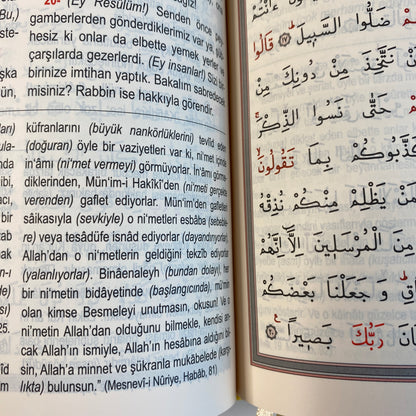 20- (Ey Resûlüm!) Senden önce
gamberlerden gönderdiklerimiz var ya,
hesiz ki onlar da elbette yemek yerler
çarşılarda gezerlerdi. (Ey insanlar!) Sizi
birinize imtihan yaptık. Bakalım sabredecek
misiniz? Rabbin ise hakkıyla görendir.
küfranlarını (büyük nankörlüklerini) tevlîd eden
(doğuran) öyle bir vaziyetleri var ki, ni'met içinde
in'âmı (ni'met vermeyi) görmüyorlar. İn'âmı
diklerinden, Mün'im-i Hakîkî'den (ni'meti gerçekte
verenden) gaflet ediyorlar. Mün'im'den gafletleri
sâikasıyla (sevkiyle) o ni'metleri esbâba (sebeble-
re) veya tesâdüfe isnâd ediyorlar (dayandırıyorlar),
Allah'dan o ni'metlerin geldiğini tekzîb ediyorlar
(yalanlıyorlar). Binâenaleyh (bundan dolayı), her
ni'metin bidâyetinde (başlangıcında), mü'min
olan kimse Besmeleyi unutmasın, okusun! Ve o
ni'metin Allah'dan olduğunu bilmekle, kendisi an-
cak Allah'ın ismiyle, Allah'ın hesâbına aldığını bi-
lip, Allah'a minnet ve şükranla mukābelede (karşı-
lıkta) bulunsun." (Mesnevî-i Nûriye, Habâb, 81)
ضَلُّوا السَّبِيلَ ﴿١٧﴾ قَالُوا
نَتَّخِذَ مِنْ دُونِكَ مِنْ
حَتَّى نَسُوا الذِّكْرَ
كَذَّبُوكُمْ بِمَا تَقُولُونَ
مَنْ يَظْلِمْ مِنْكُمْ نُذِقْهُ
مِنَ الْمُرْسَلِينَ اِلَّٓا اِنَّهُمْ
وَجَعَلْنَا بَعْضَكُمْ
رَبُّكَ بَصِيرًا